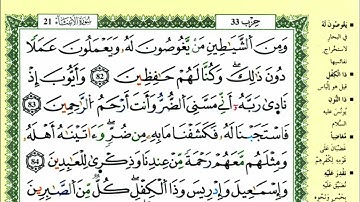 حِزْب 33
سُورَةُ الْأَنبِيَاء 21
وَمِنَ ٱلشَّيَٰطِينِ مَن يَّغُوصُونَ لَهُۥ وَيَعْمَلُونَ عَمَلًا
دُونَ ذَٰلِكَۖ وَكُنَّا لَهُمْ حَٰفِظِينَ 82 وَأَيُّوبَ إِذْ
نَادَىٰ رَبَّهُۥٓ أَنِّي مَسَّنِيَ ٱلضُّرُّ وَأَنتَ أَرْحَمُ ٱلرَّٰحِمِينَ 83
فَٱسْتَجَبْنَا لَهُۥ فَكَشَفْنَا مَا بِهِۦ مِن ضُرٍّۖ وَءَاتَيْنَٰهُ أَهْلَهُۥ
وَمِثْلَهُم مَّعَهُمْ رَحْمَةً مِّنْ عِندِنَا وَذِكْرَىٰ لِلْعَٰبِدِينَ 84
وَإِسْمَٰعِيلَ وَإِدْرِيسَ وَذَا ٱلْكِفْلِۖ كُلٌّ مِّنَ ٱلصَّٰبِرِينَ
يَغُوصُونَ لَهُ
في البحار
لاستخراج
نفائسها
ذا الكفل
قيل هو إلياس
ذا النون
يونس عليه
السلام
مغاضبا
غضبان على
قومه لكفرهم
نقدر عليه
نضيق عليه